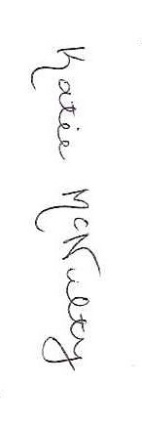 Katie McNultry